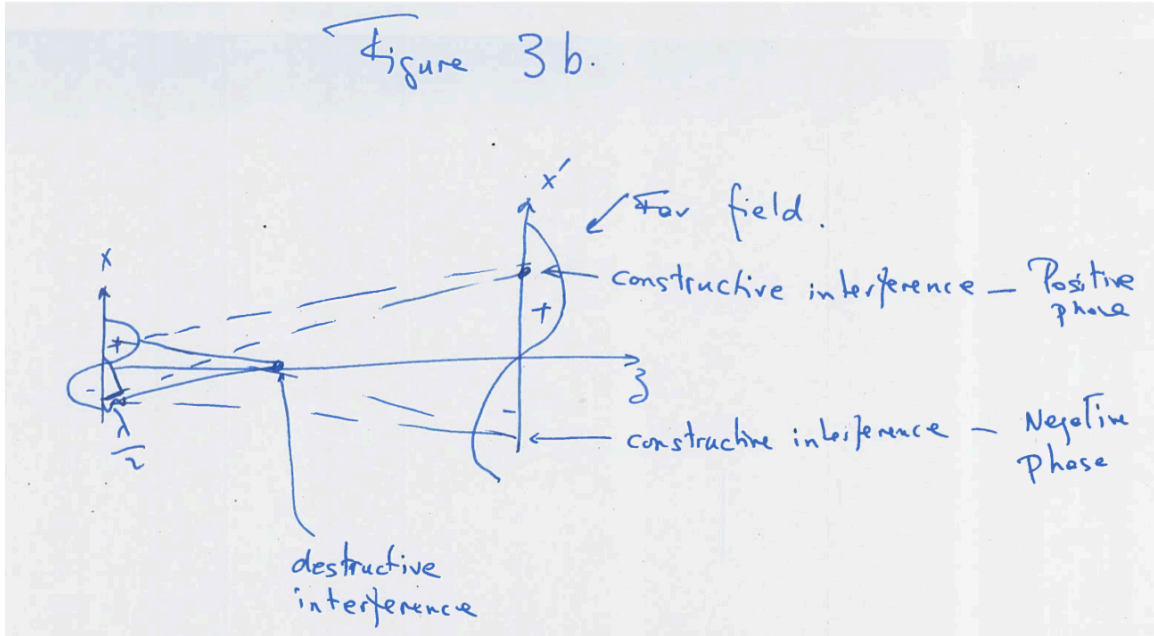 Figure 3b.
x'
Far field.
x
constructive interference — Positive
phase
+
+
z
-
-
λ/2
constructive interference — Negative
Phase
destructive
interference